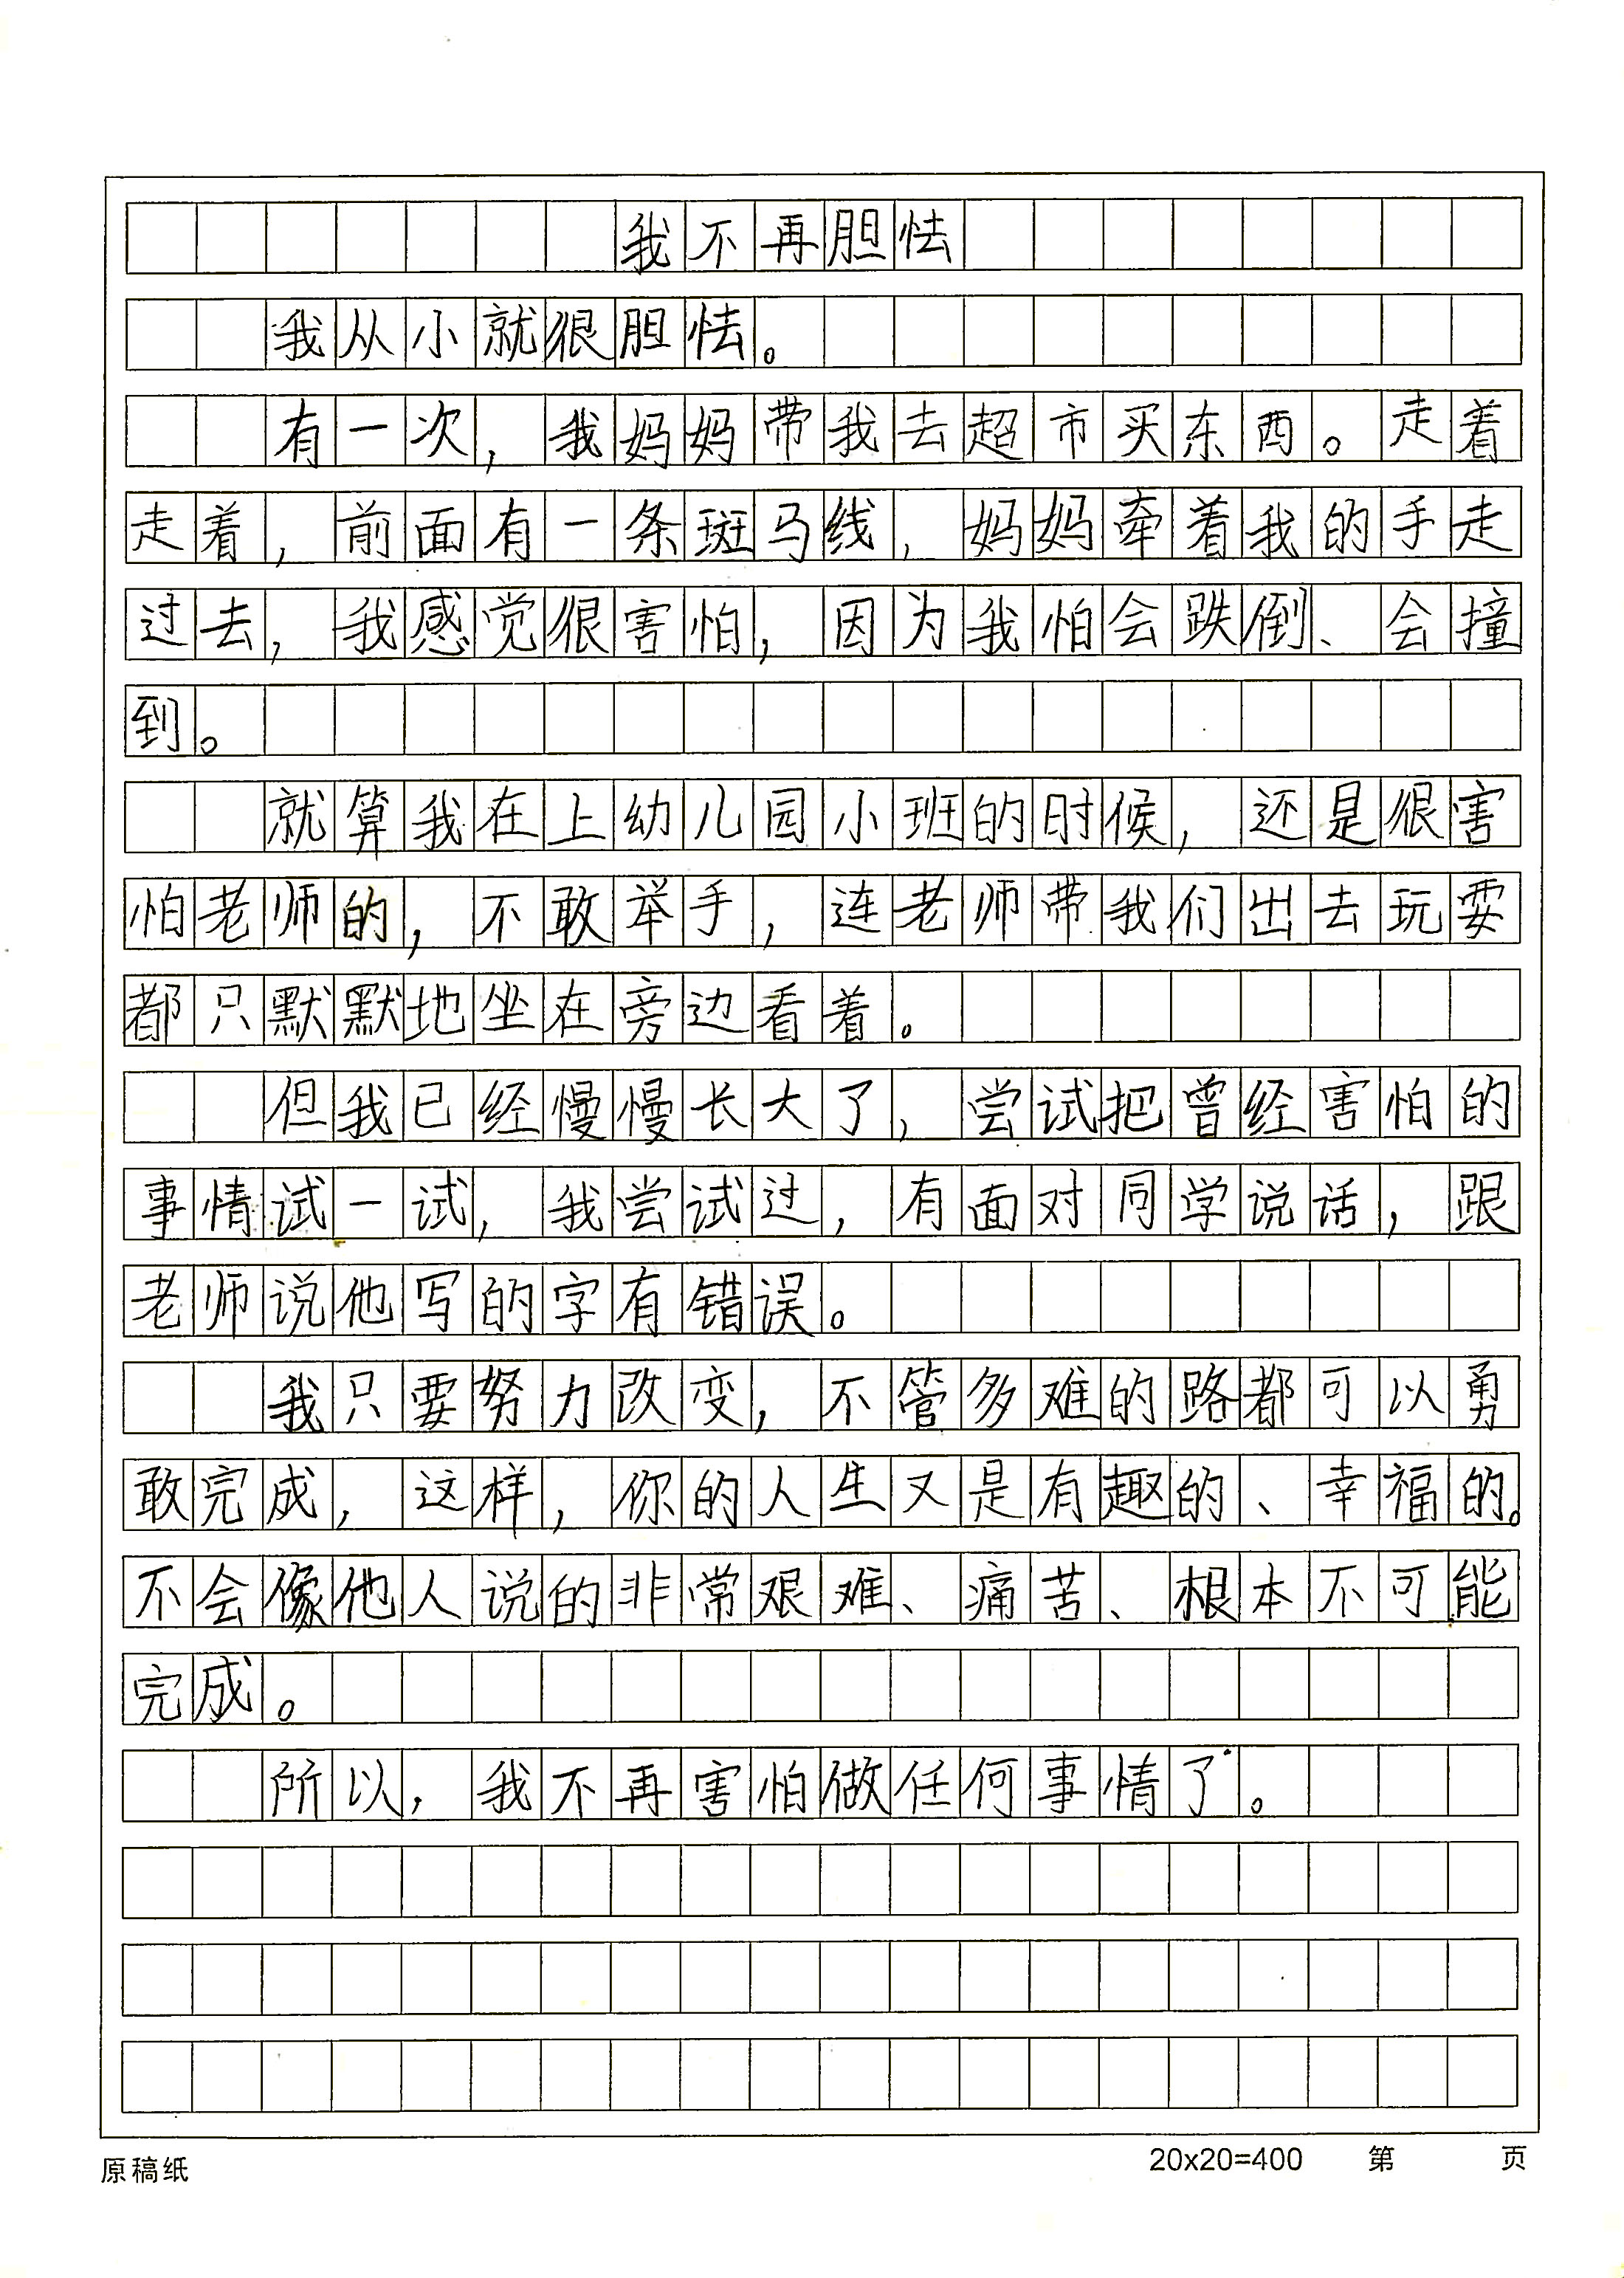 我不再胆怯
我从小就很胆怯。
有一次，我妈妈带我去超市买东西。走着
走着，前面有一条斑马线，妈妈牵着我的手走
过去，我感觉很害怕，因为我怕会跌倒、会撞
到。
就算我在上幼儿园小班的时候，还是很害
怕老师的，不敢举手，连老师带我们出去玩耍
都只默默地坐在旁边看着。
但我已经慢慢长大了，尝试把曾经害怕的
事情试一试，我尝试过，有面对同学说话，跟
老师说他写的字有错误。
我只要努力改变，不管多难的路都可以勇
敢完成，这样，你的人生又是有趣的、幸福的。
不会像他人说的非常艰难、痛苦、根本不可能
完成。
所以，我不再害怕做任何事情了。
原稿纸 20x20=400 第 页